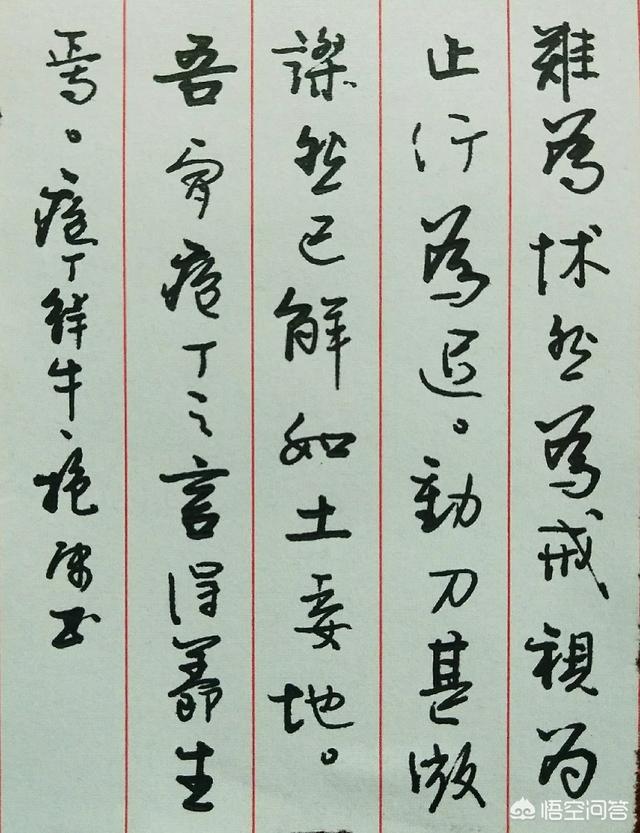 難為怵然為戒視為
止行為遲。動刀甚微
謋然已解如土委地。
吾聞庖丁之言得養生
焉。庖丁解牛、
悟空问答